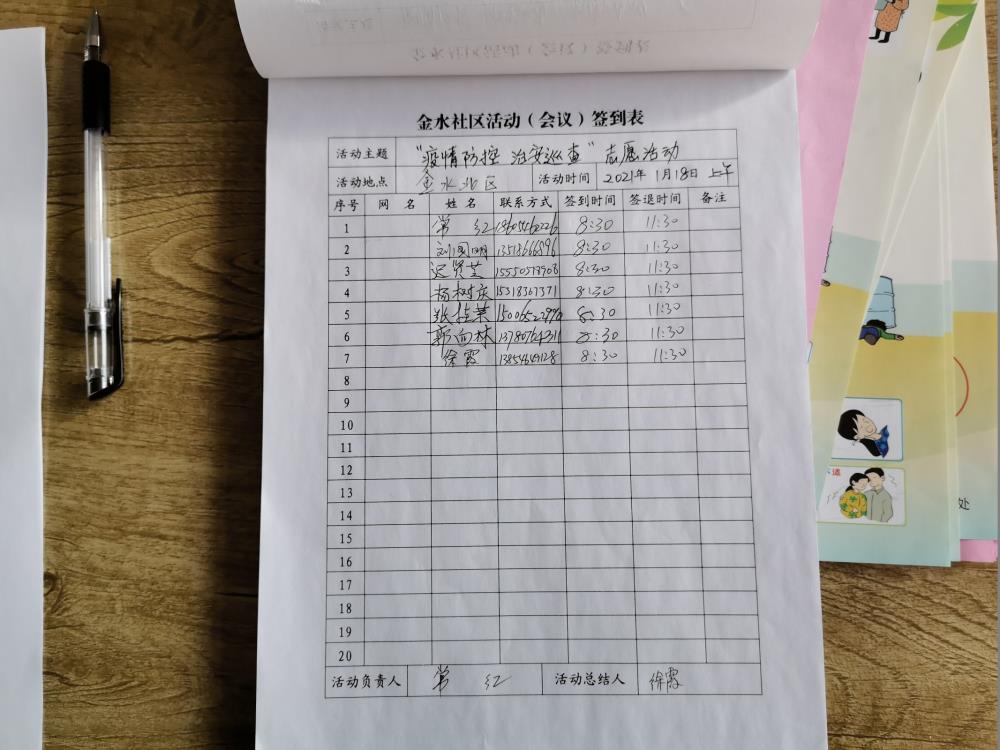 金水社区活动（会议）签到表
活动主题 "疫情防控 治安巡查"志愿活动
活动地点 金水北区 活动时间 2021年1月18日 上午
序号 网名 姓名 联系方式 签到时间 签退时间 备注
1 常红 8:30 11:30
2 刘国明 13518666596 8:30 11:30
3 迟贤芝 15550578908 8:30 11:30
4 杨树庆 15318367371 8:30 11:30
5 8:30 11:30
6 郭向林 8:30 11:30
7 徐霞 8:30 11:30
8
9
10
11
12
13
14
15
16
17
18
19
20
活动负责人 常红 活动总结人 徐霞
处